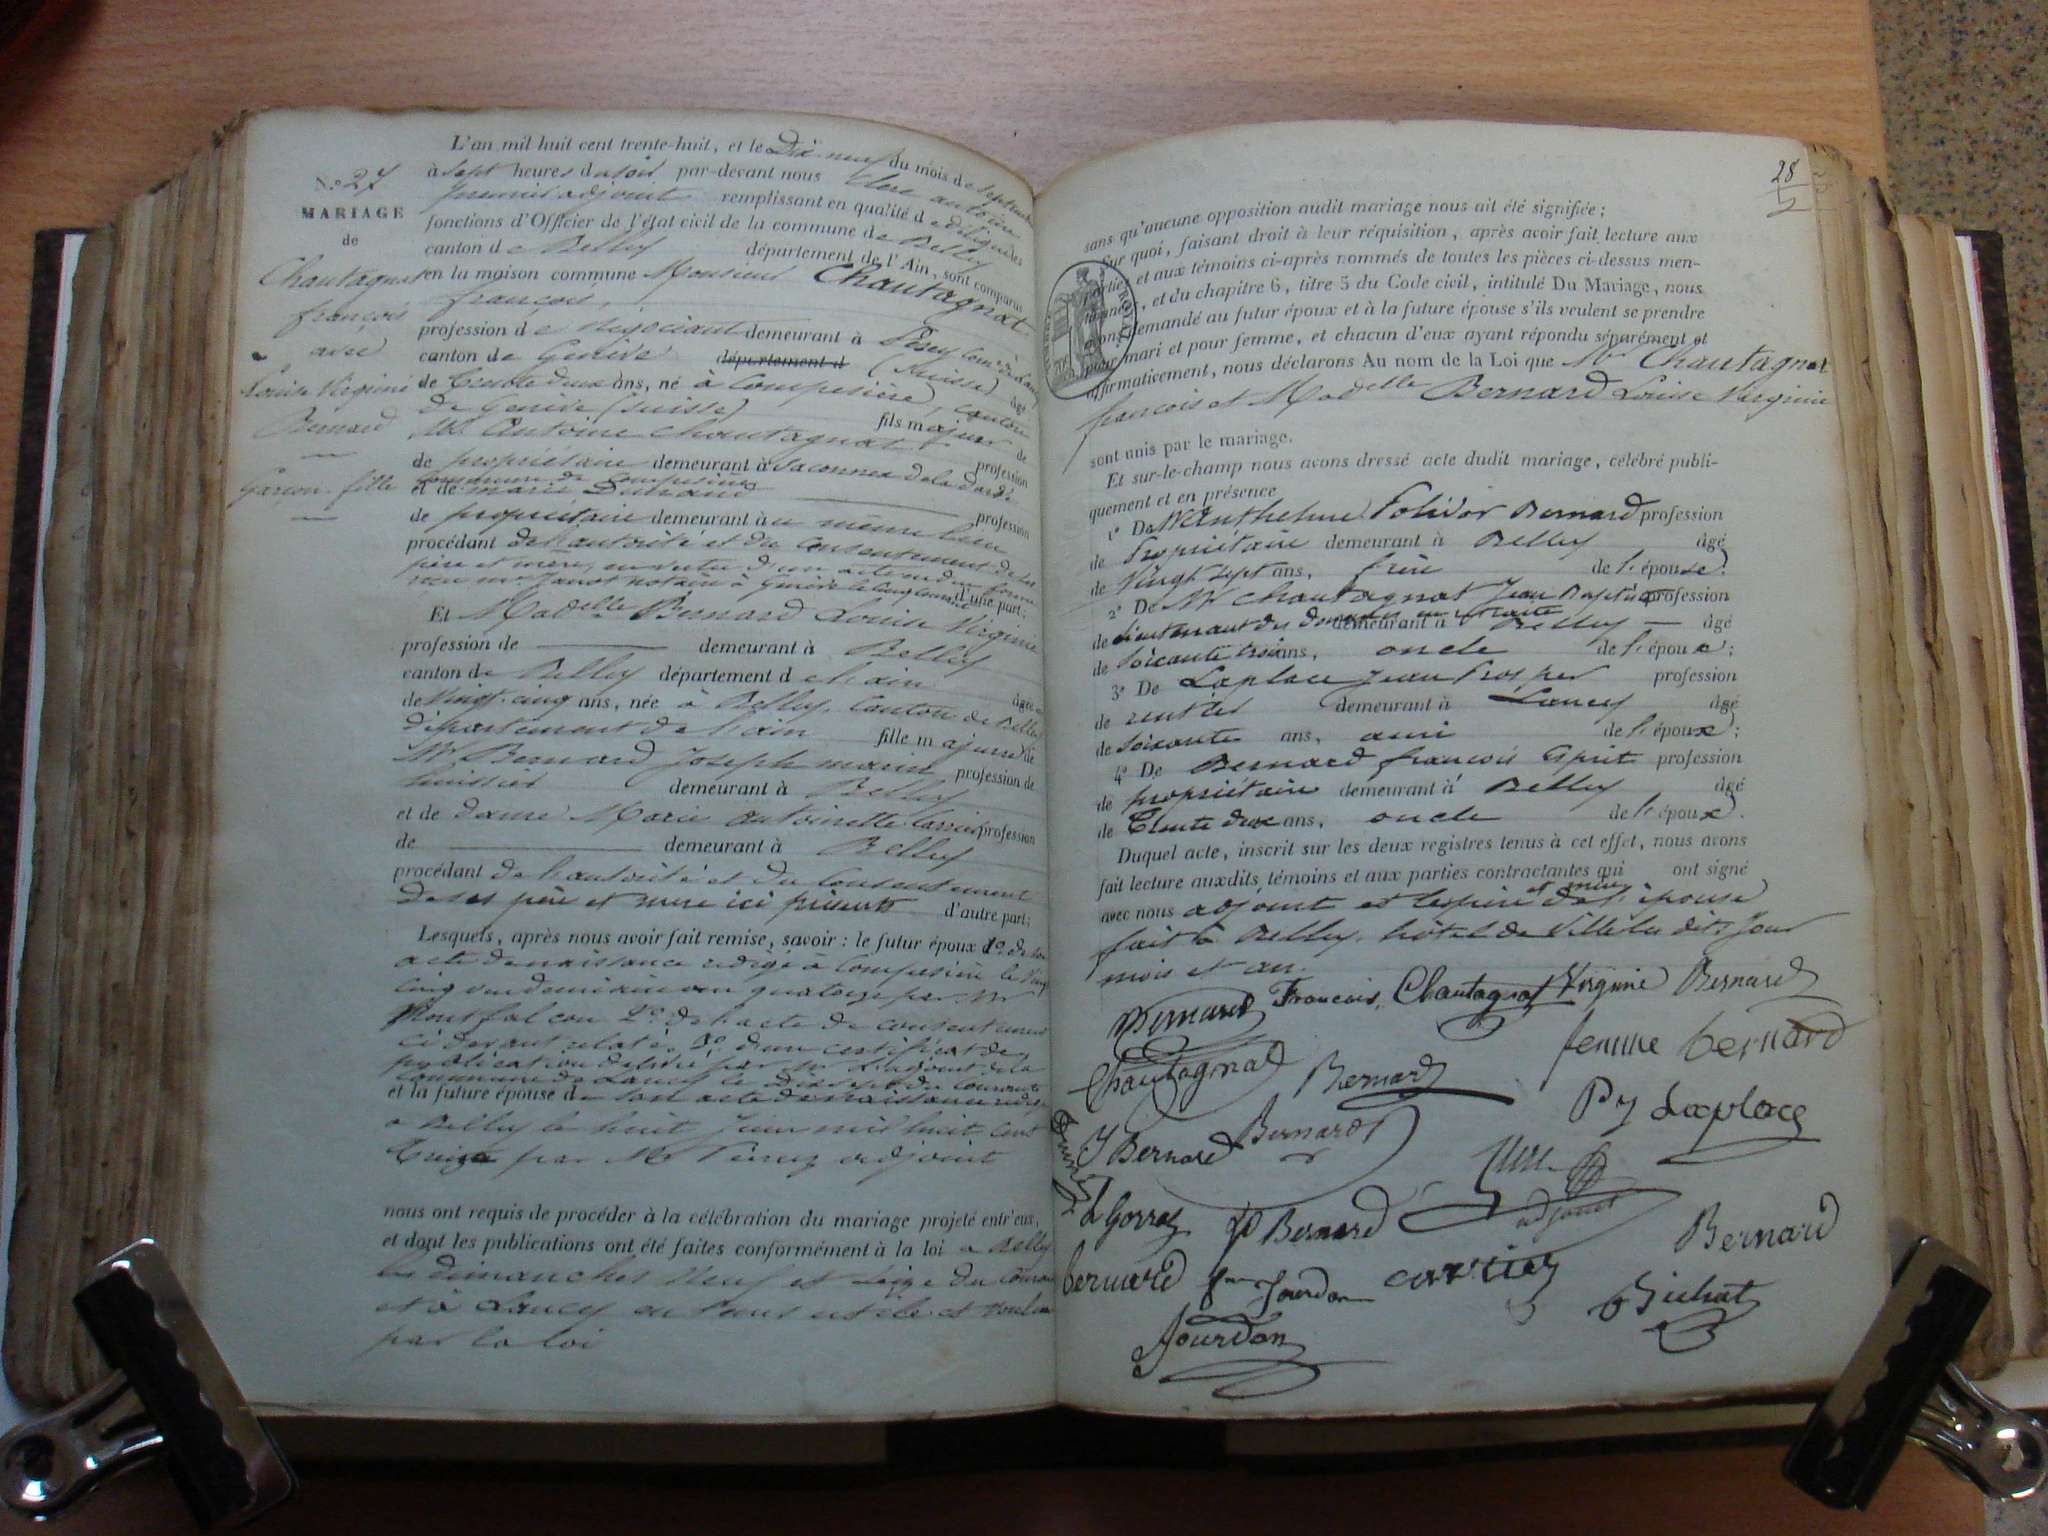 N.º 27
MARIAGE
de
Chautagnat
françois
avec
Louise Virginie
Bernard
Garçon. fille
L'an mil huit cent trente-huit, et le Dix-neuf du mois de septembre
à sept heures du soir par-devant nous Clerc antoine
premier adjoint remplissant en qualité de délégué les
fonctions d'Officier de l'état civil de la commune de Belley
canton de Belley département de l'Ain, sont comparus
en la maison commune Monsieur Chautagnat
françois,
profession de Négociant demeurant à Pesey Com.e de Lancy
canton de Genève département d (Suisse) âgé
de Trente deux ans, né à Compesière, canton
de Genève (Suisse) fils majeur de
Mr Antoine Chautagnat profession
de propriétaire demeurant à Saconnex delà d'arve
commune de Compesière
et de marie Durand profession
de propriétaire demeurant au même lieu
procédant de l'autorité et du consentement de ses
père et mère, en vertu d'un acte en due forme
reçu mr Janot notaire à Genève le cinq courant d'une part;
Et Madelle Bernard Louise Virginie
profession de demeurant à Belley
canton de Belley département de l'ain âgée
de Vingt-cinq ans, née à Belley, Canton de Belley
département de l'ain fille majeure de
Mr Bernard Joseph marie profession de
huissier demeurant à Belley
et de dame Marie antoinette Carrier profession
de demeurant à Belley
procédant de l'autorité et du Consentement
de ses père et mère ici présents d'autre part;
Lesquels, après nous avoir fait remise, savoir: le futur époux 1º de son
acte de naissance rédigé à Compesière le Vingt
cinq vendémiaire an quatorze par Mr
Montfalcon 2º de l'acte de consentement
ci devant relaté, 3º d'un certificat de
publication délivré par Mr l'adjoint de la
commune de Lancy le Dix sept du Courant
et la future épouse de son acte de naissance rédigé
à Belley le huit Juin mil huit cent
Treize par Mr adjoint
nous ont requis de procéder à la célébration du mariage projeté entr'eux,
et dont les publications ont été faites conformément à la loi à Belley
les dimanches Neuf et Seize du Courant
et à Lancy en tems utile et voulu
par la loi
28
sans qu'aucune opposition audit mariage nous ait été signifiée;
Sur quoi, faisant droit à leur réquisition, après avoir fait lecture aux
parties et aux témoins ci-après nommés de toutes les pièces ci-dessus men-
tionnées, et du chapitre 6, titre 5 du Code civil, intitulé Du Mariage, nous
avons demandé au futur époux et à la future épouse s'ils veulent se prendre
pour mari et pour femme, et chacun d'eux ayant répondu séparément et
affirmativement, nous déclarons Au nom de la Loi que Mr Chautagnat
françois et Madelle Bernard Louise Virginie
sont unis par le mariage.
Et sur-le-champ nous avons dressé acte dudit mariage, célébré publi-
quement et en présence
1º De Mr Anthelme Polidor Bernard profession
de Propriétaire demeurant à Belley âgé
de Vingt sept ans, frère de l'épouse.
2º De Mr Chautagnat Jean Baptiste profession
de Lieutenant des douanes en retraite demeurant à Belley âgé
de Soixante trois ans, oncle de l'époux;
3º De Laplace Jean Prosper profession
de rentier demeurant à Lancy âgé
de Soixante ans, ami de l'époux;
4º De Bernard françois Esprit profession
de propriétaire demeurant à Belley âgé
de Trente deux ans, oncle de l'époux.
Duquel acte, inscrit sur les deux registres tenus à cet effet, nous avons
fait lecture auxdits témoins et aux parties contractantes qui ont signé
avec nous adjoint et les père et mère de l'épouse
fait à Belley, hôtel de Ville les dits Jour
mois et an.
Bernard François Chautagnat Virginie Bernard
Chautagnat Bernard femme bernard
Py Laplace
J Bernard Bernard
Clerc
adjoint
L Gorraz P Bernard Bernard
bernard fme Jourdan carrier Bichat
Jourdan